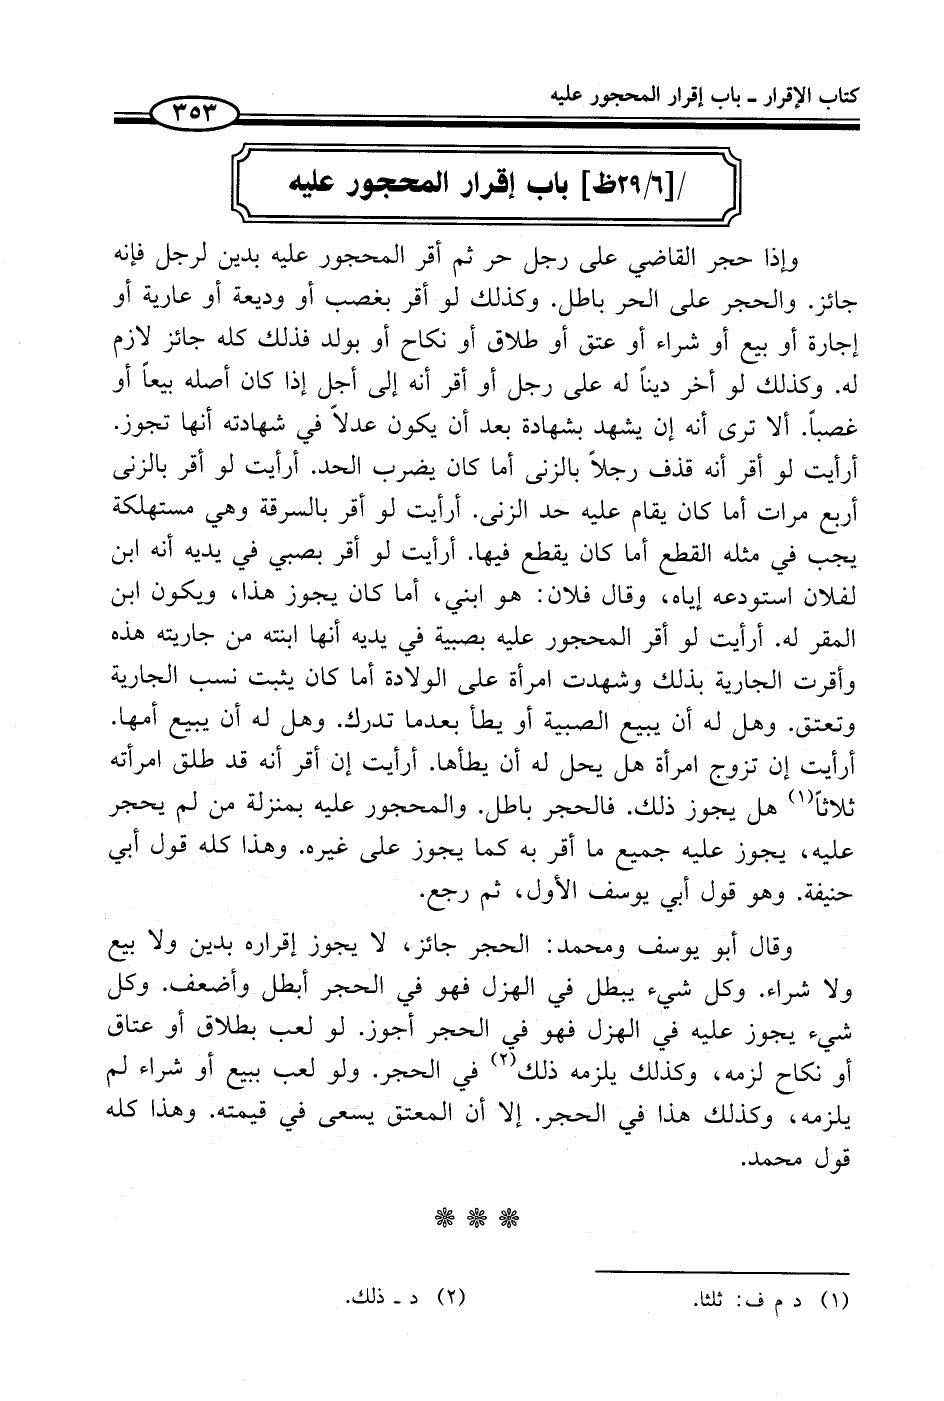 كتاب الإقرار - باب إقرار المحجور عليه
٣٥٣
/[٢٩/٦ظ] باب إقرار المحجور عليه
وإذا حجر القاضي على رجل حر ثم أقر المحجور عليه بدين لرجل فإنه
جائز. والحجر على الحر باطل. وكذلك لو أقر بغصب أو وديعة أو عارية أو
إجارة أو بيع أو شراء أو عتق أو طلاق أو نكاح أو بولد فذلك كله جائز لازم
له. وكذلك لو أخر ديناً له على رجل أو أقر أنه إلى أجل إذا كان أصله بيعاً أو
غصباً. ألا ترى أنه إن يشهد بشهادة بعد أن يكون عدلاً في شهادته أنها تجوز.
أرأيت لو أقر أنه قذف رجلاً بالزنى أما كان يضرب الحد. أرأيت لو أقر بالزنى
أربع مرات أما كان يقام عليه حد الزنى. أرأيت لو أقر بالسرقة وهي مستهلكة
يجب في مثله القطع أما كان يقطع فيها. أرأيت لو أقر بصبي في يديه أنه ابن
لفلان استودعه إياه، وقال فلان: هو ابني، أما كان يجوز هذا، ويكون ابن
المقر له. أرأيت لو أقر المحجور عليه بصبية في يديه أنها ابنته من جاريته هذه
وأقرت الجارية بذلك وشهدت امرأة على الولادة أما كان يثبت نسب الجارية
وتعتق. وهل له أن يبيع الصبية أو يطأ بعدما تدرك. وهل له أن يبيع أمها.
أرأيت إن تزوج امرأة هل يحل له أن يطأها. أرأيت إن أقر أنه قد طلق امرأته
ثلاثاً(١) هل يجوز ذلك. فالحجر باطل. والمحجور عليه بمنزلة من لم يحجر
عليه، يجوز عليه جميع ما أقر به كما يجوز على غيره. وهذا كله قول أبي
حنيفة. وهو قول أبي يوسف الأول، ثم رجع.
وقال أبو يوسف ومحمد: الحجر جائز، لا يجوز إقراره بدين ولا بيع
ولا شراء. وكل شيء يبطل في الهزل فهو في الحجر أبطل وأضعف. وكل
شيء يجوز عليه في الهزل فهو في الحجر أجوز. لو لعب بطلاق أو عتاق
أو نكاح لزمه، وكذلك يلزمه ذلك(٢) في الحجر. ولو لعب ببيع أو شراء لم
يلزمه، وكذلك هذا في الحجر. إلا أن المعتق يسعى في قيمته. وهذا كله
قول محمد.
(١) د م ف: ثلثا.
(٢) د ـ ذلك.